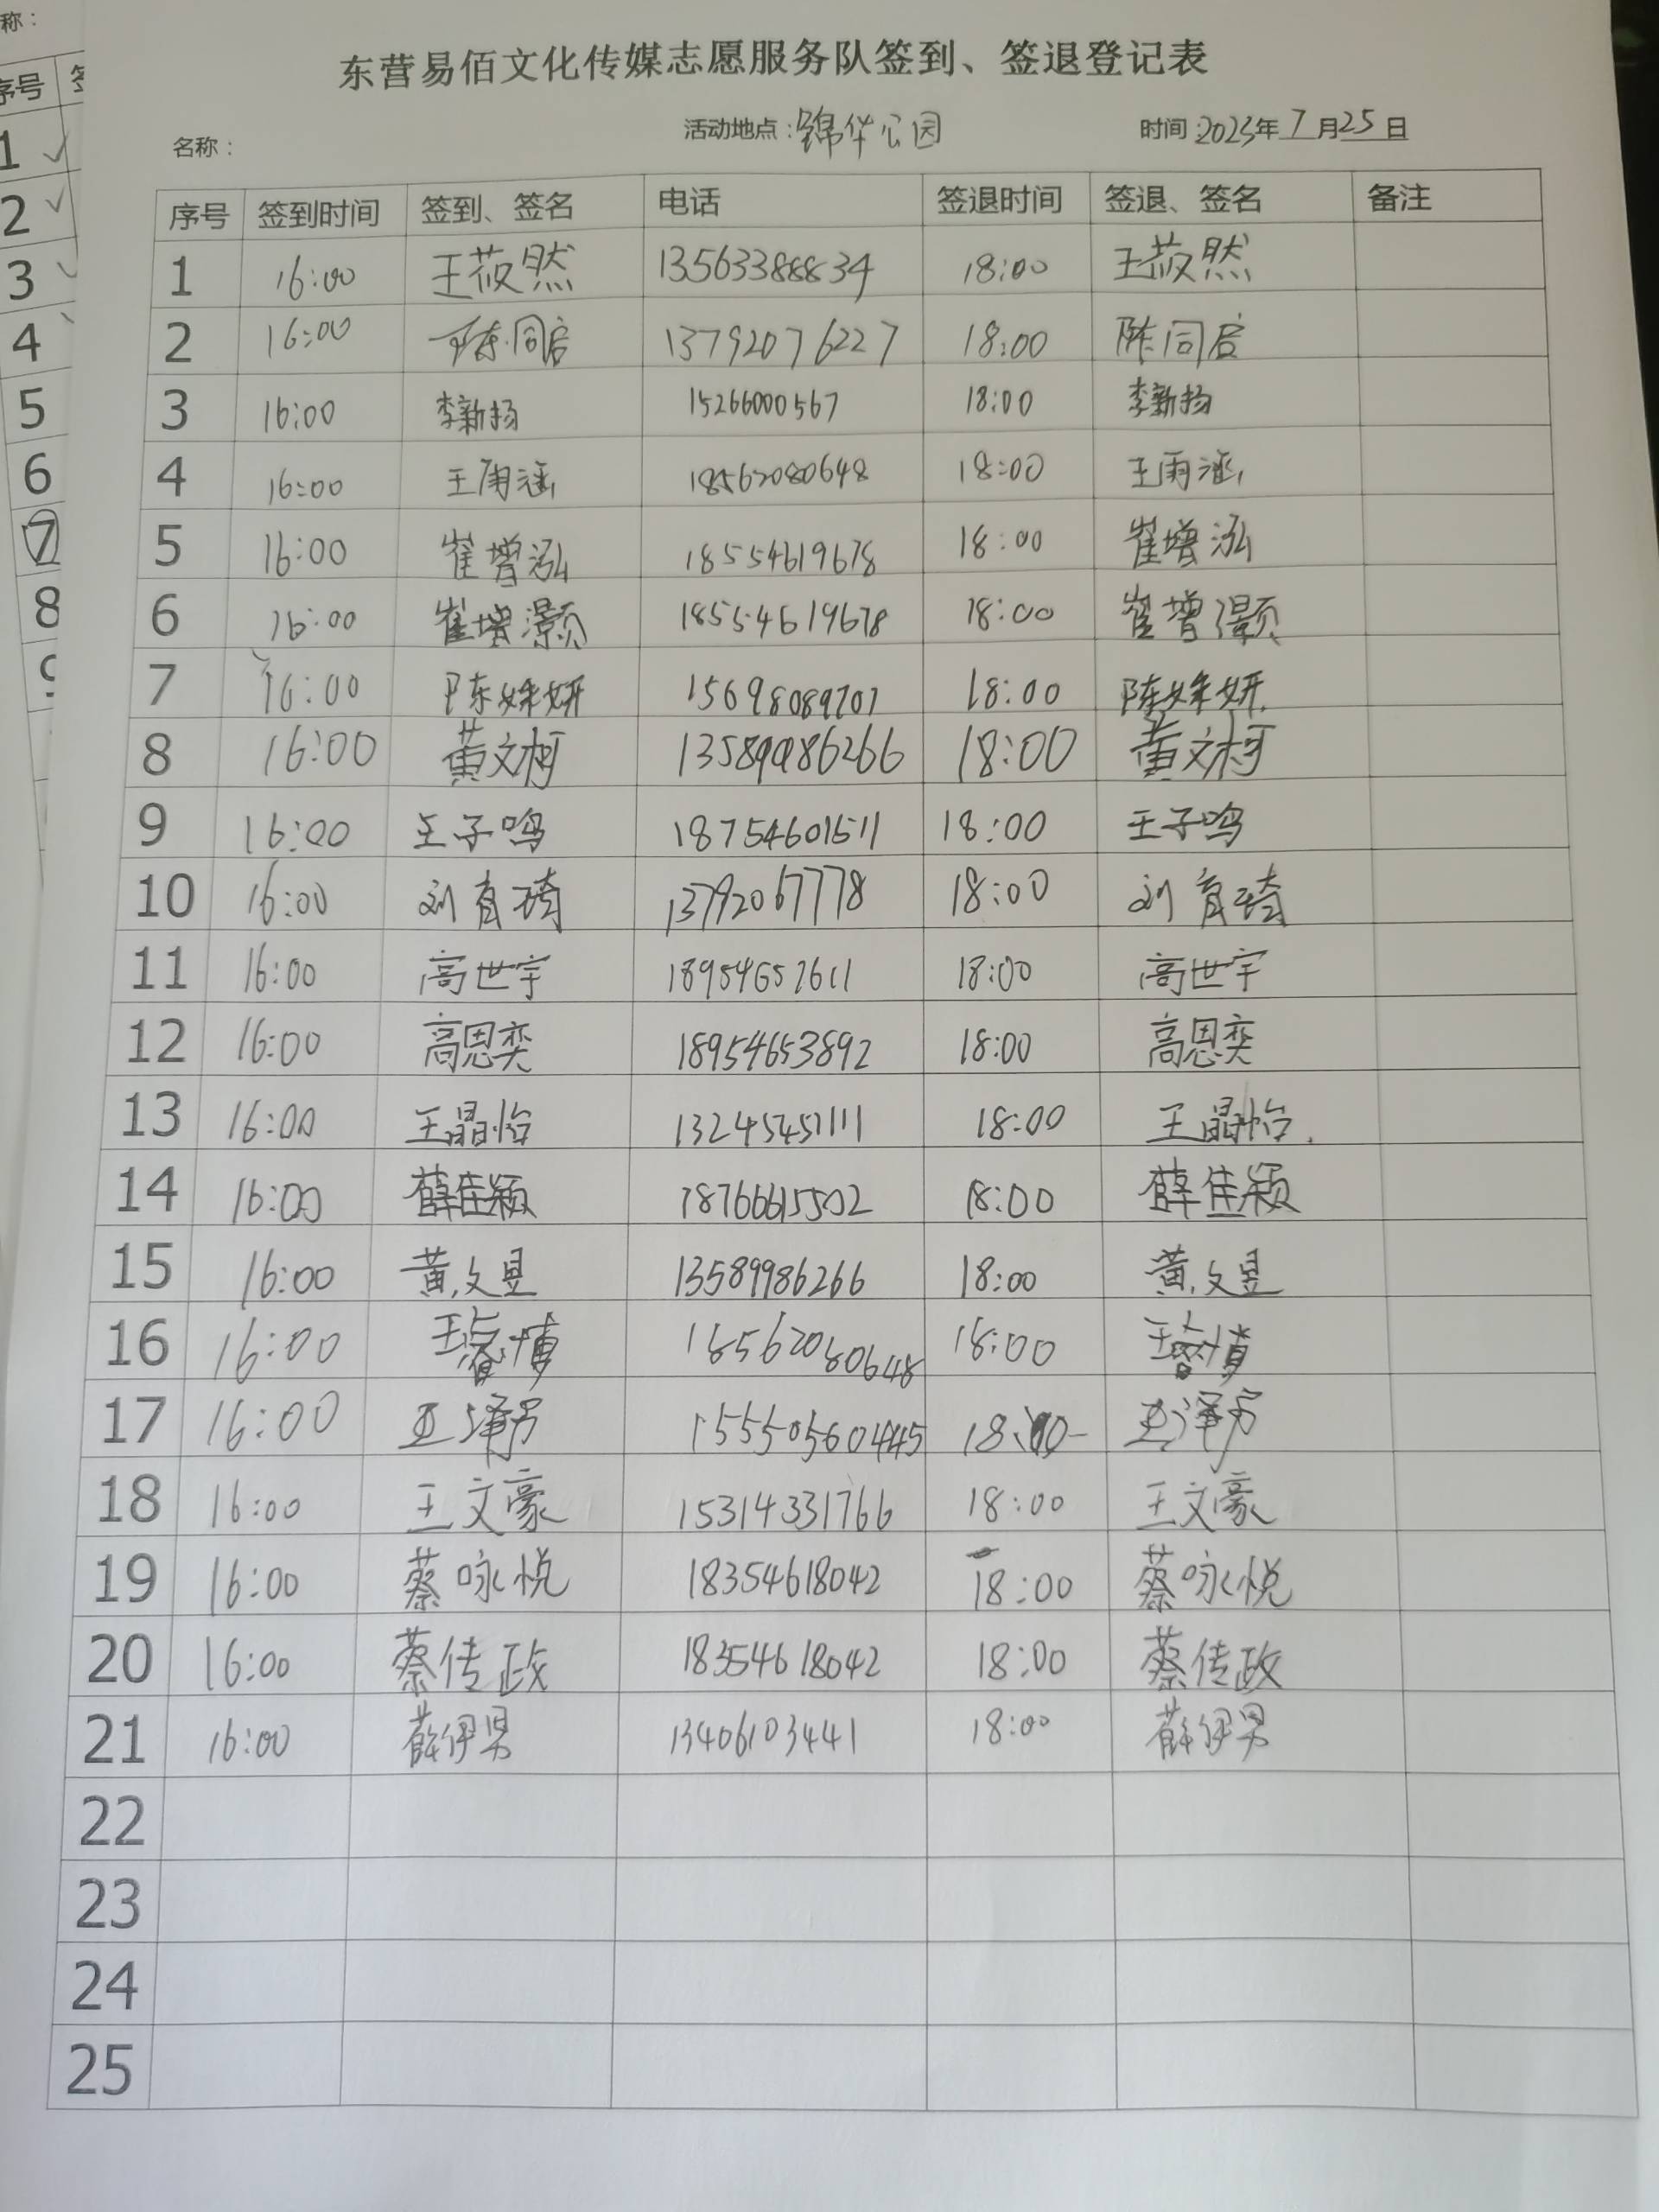 称：
序号 签
1
2
3
4
5
6
7
8
东营易佰文化传媒志愿服务队签到、签退登记表
名称： 活动地点：锦华公园 时间：2023年7月25日
序号 签到时间 签到、签名 电话 签退时间 签退、签名 备注
1 16:00 王莜然 13563388834 18:00 王莜然
2 16:00 陈同启 13792076227 18:00 陈同启
3 16:00 李新扬 15266000567 18:00 李新扬
4 16:00 王雨涵 18562080648 18:00 王雨涵
5 16:00 崔增泓 18554619678 18:00 崔增泓
6 16:00 崔增灏 18554619678 18:00 崔增灏
7 16:00 陈姝妍 15698089707 18:00 陈姝妍
8 16:00 黄文柯 13589986266 18:00 黄文柯
9 16:00 王子鸣 18754601511 18:00 王子鸣
10 16:00 刘育琦 13792067778 18:00 刘育琦
11 16:00 高世宇 18954652611 18:00 高世宇
12 16:00 高恩奕 18954653892 18:00 高恩奕
13 16:00 王晶怡 13245451111 18:00 王晶怡
14 16:00 薛佳颖 18766615502 18:00 薛佳颖
15 16:00 黄文昱 13589986266 18:00 黄文昱
16 16:00 18562080648 18:00
17 16:00 15550560445 18:00
18 16:00 王文豪 15314331766 18:00 王文豪
19 16:00 蔡咏悦 18354618042 18:00 蔡咏悦
20 16:00 蔡传政 18354618042 18:00 蔡传政
21 16:00 薛伊男 13406103441 18:00 薛伊男
22
23
24
25